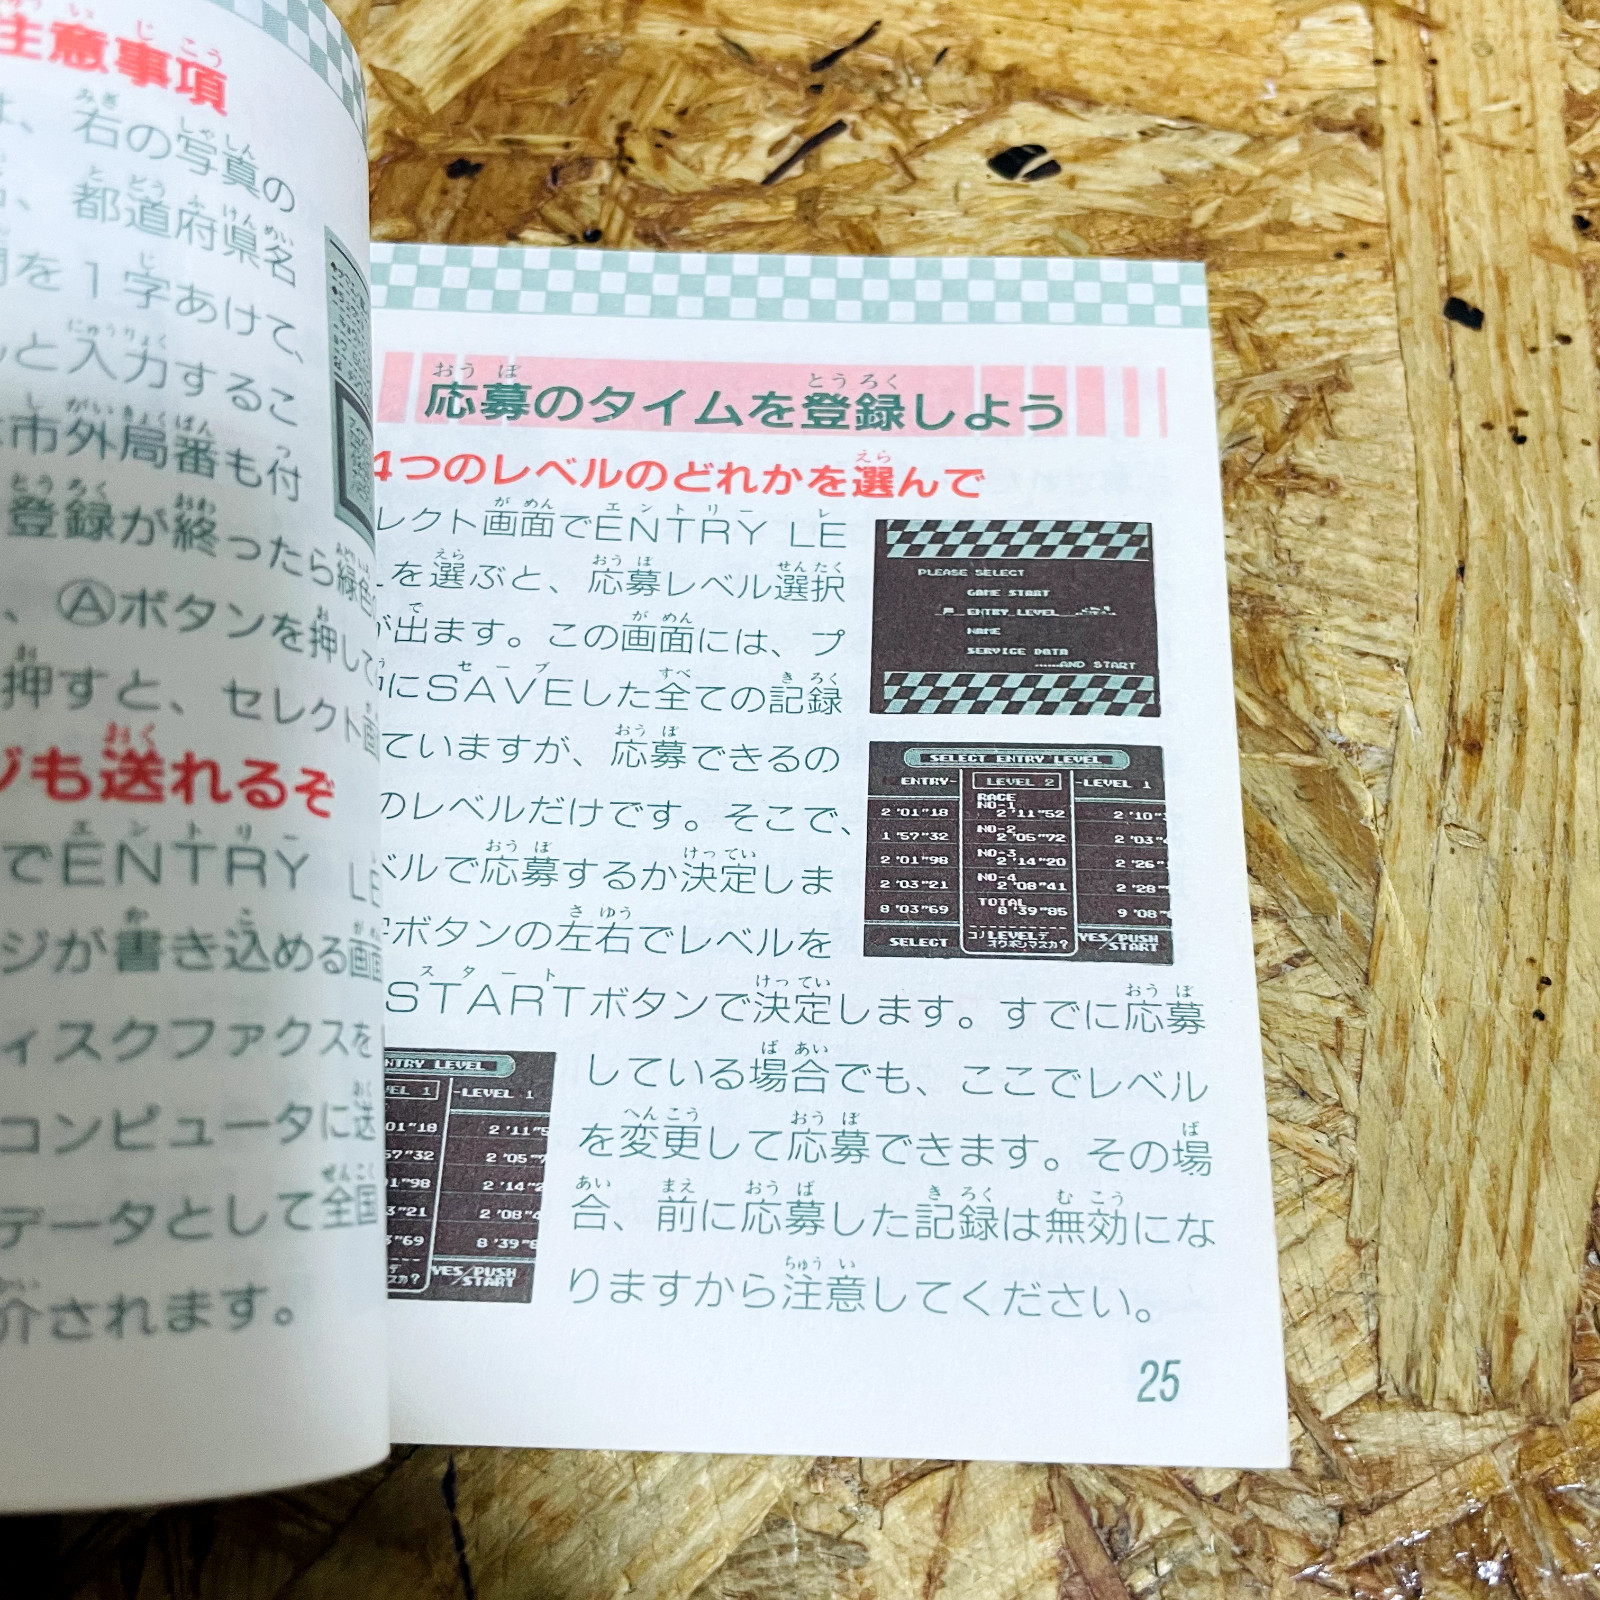 注意事項
右の写真の
、都道府県名
を1字あけて、
と入力するこ
市外局番も付
登録が終ったら緑色
、Ⓐボタンを押して
押すと、セレクト画
ジも送れるぞ
でENTRY LE
ジが書き込める画面
ィスクファクスを
コンピュータに送
データとして全国
介されます。
応募のタイムを登録しよう
4つのレベルのどれかを選んで
レクト画面でENTRY LE
を選ぶと、応募レベル選択
が出ます。この画面には、プ
にSAVEした全ての記録
ていますが、応募できるの
のレベルだけです。そこで、
ベルで応募するか決定しま
字ボタンの左右でレベルを
STARTボタンで決定します。すでに応募
している場合でも、ここでレベル
を変更して応募できます。その場
合、前に応募した記録は無効にな
りますから注意してください。
PLEASE SELECT
GAME START
ENTRY LEVEL
NAME
SERVICE DATA
......AND START
SELECT ENTRY LEVEL
ENTRY- LEVEL 2 -LEVEL 1
RACE
NO-1
2 '01"18 2 '11"52 2 '10"
NO-2
1 '57"32 2 '05"72 2 '03"
NO-3
2 '01"98 2 '14"20 2 '26"
NO-4
2 '03"21 2 '08"41 2 '28"
TOTAL
8 '03"69 8 '39"85 9 '08"
SELECT コノLEVELデ オウボシマスカ? YES/PUSH START
NTRY LEVEL
EL 1 -LEVEL 1
01"18 2 '11"5
57"32 2 '05"7
1"98 2 '14"2
3"21 2 '08"4
3"69 8 '39"8
デ YES/PUSH
スカ? START
25